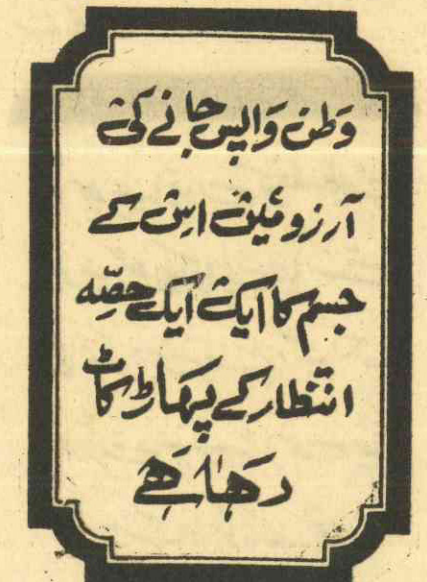 وطن واپس جانے کی
آرزو میں اس کے
جسم کا ایک ایک حصّہ
انتظار کے پہاڑ کاٹ
رہا ہے